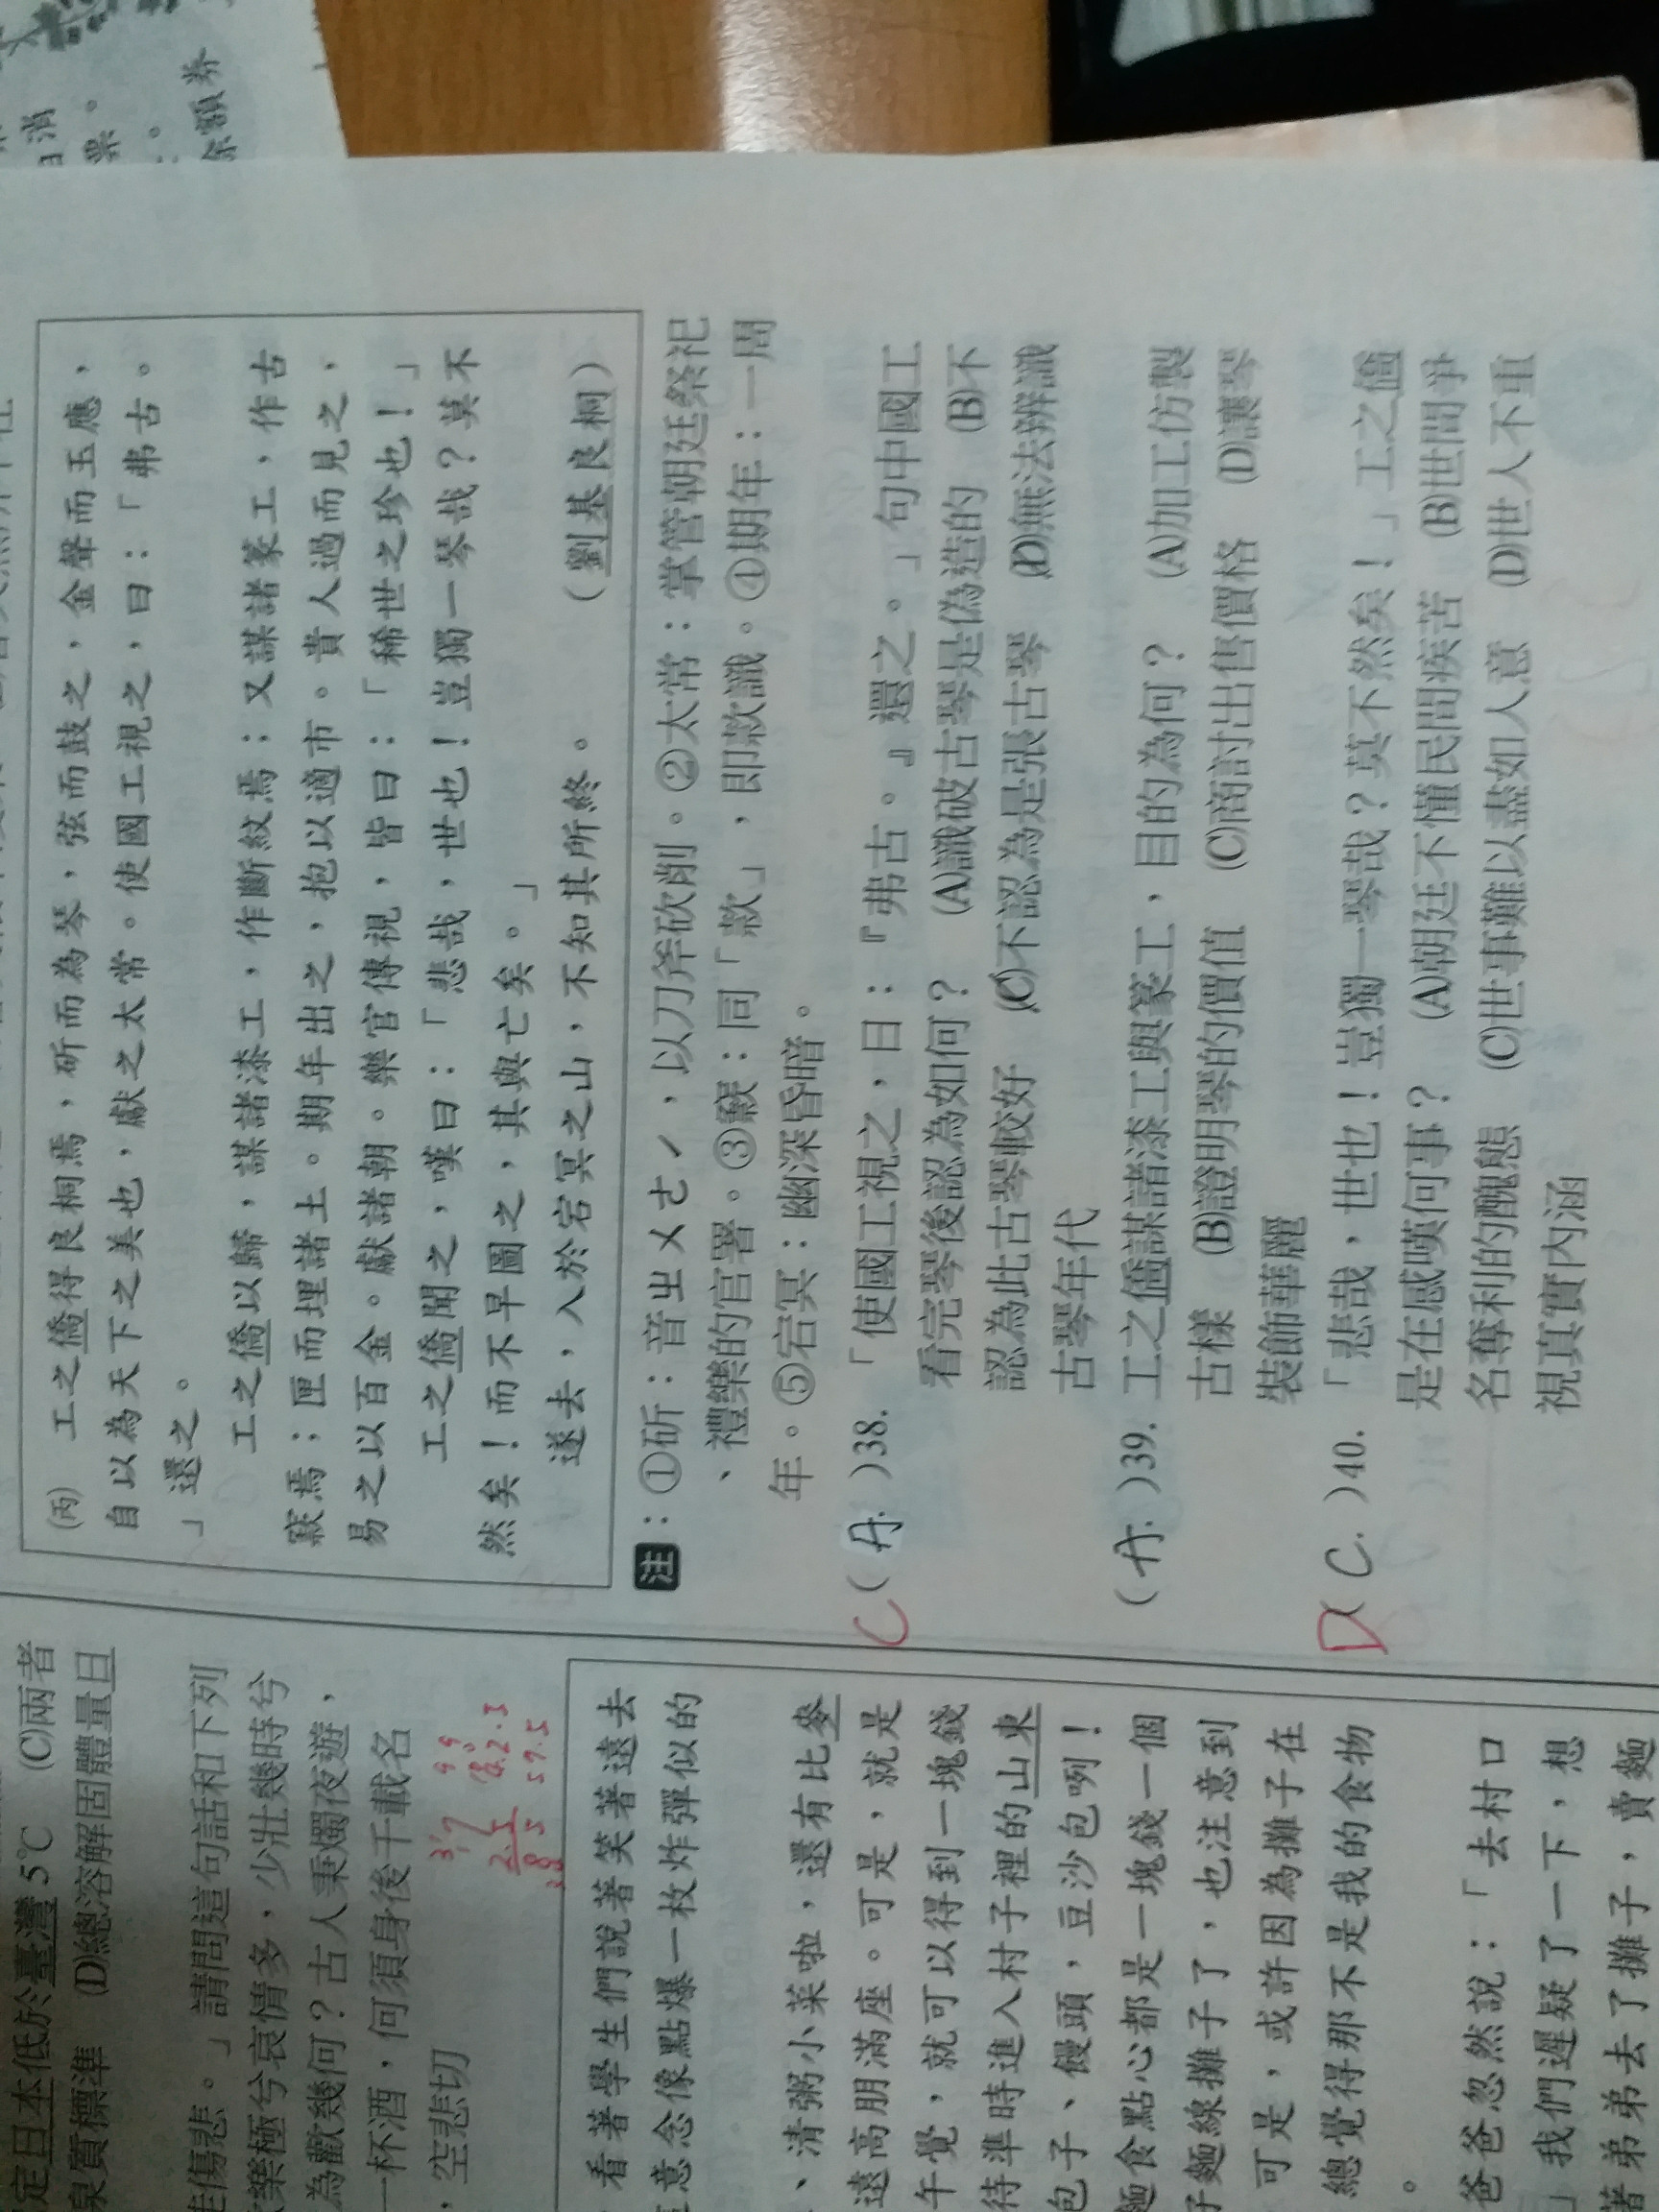 (丙) 工之僑得良桐焉，斫而為琴，弦而鼓之，金聲而玉應，
自以為天下之美也，獻之太常。使國工視之，曰：「弗古。
」還之。
工之僑以歸，謀諸漆工，作斷紋焉；又謀諸篆工，作古
窾焉；匣而埋諸土。期年出之，抱以適市。貴人過而見之，
易之以百金。獻諸朝。樂官傳視，皆曰：「稀世之珍也！」
工之僑聞之，嘆曰：「悲哉，世也！豈獨一琴哉？莫不
然矣！而不早圖之，其與亡矣。」
遂去，入於宕冥之山，不知其所終。
（劉基良桐）
注：①斫：音ㄓㄨㄛˊ，以刀斧砍削。②太常：掌管朝廷祭祀
、禮樂的官署。③窾：同「款」，即款識。④期年：一周
年。⑤宕冥：幽深昏暗。
C（A.）38.「使國工視之，曰：『弗古。』還之。」句中國工
看完琴後認為如何？ (A)識破古琴是偽造的 (B)不
認為此古琴較好 (C)不認為是張古琴 (D)無法辨識
古琴年代
（A.）39. 工之僑謀諸漆工與篆工，目的為何？ (A)加工仿製
古樣 (B)證明琴的價值 (C)商討出售價格 (D)讓琴
裝飾華麗
D（C.）40.「悲哉，世也！豈獨一琴哉？莫不然矣！」工之僑
是在感嘆何事？ (A)朝廷不懂民間疾苦 (B)世間爭
名奪利的醜態 (C)世事難以盡如人意 (D)世人不重
視真實內涵
定日本低於臺灣5℃ (C)兩者
泉質標準 (D)總溶解固體量日
傷悲。」請問這句話和下列
樂極兮哀情多，少壯幾時兮
為歡幾何？古人秉燭夜遊，
一杯酒，何須身後千載名
，空悲切
看著學生們說著笑著遠去
意念像點爆一枚炸彈似的
、清粥小菜啦，還有比麥
遠高朋滿座。可是，就是
午覺，就可以得到一塊錢
待準時進入村子裡的山東
包子、饅頭，豆沙包咧！
麵食點心都是一塊錢一個
子麵線攤子了，也注意到
可是，或許因為攤子在
總覺得那不是我的食物
。
爸爸忽然說：「去村口
」我們遲疑了一下，想
著弟弟去了攤子，賣麵